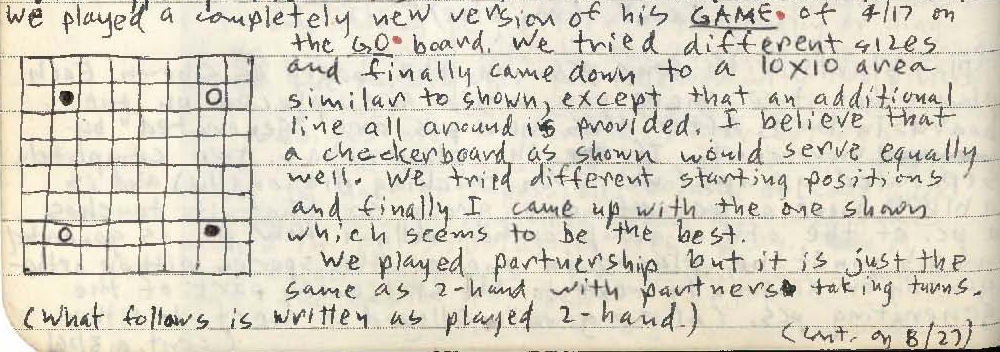 We played a completely new version of his GAME. of 4/17 on
the GO. board. We tried different sizes
and finally came down to a 10x10 area
similar to shown, except that an additional
line all around is provided. I believe that
a checkerboard as shown would serve equally
well. We tried different starting positions
and finally I came up with the one shown
which seems to be the best.
We played partnership but it is just the
same as 2-hand with partners taking turns.
(What follows is written as played 2-hand.)
(Cont. on 8/27)